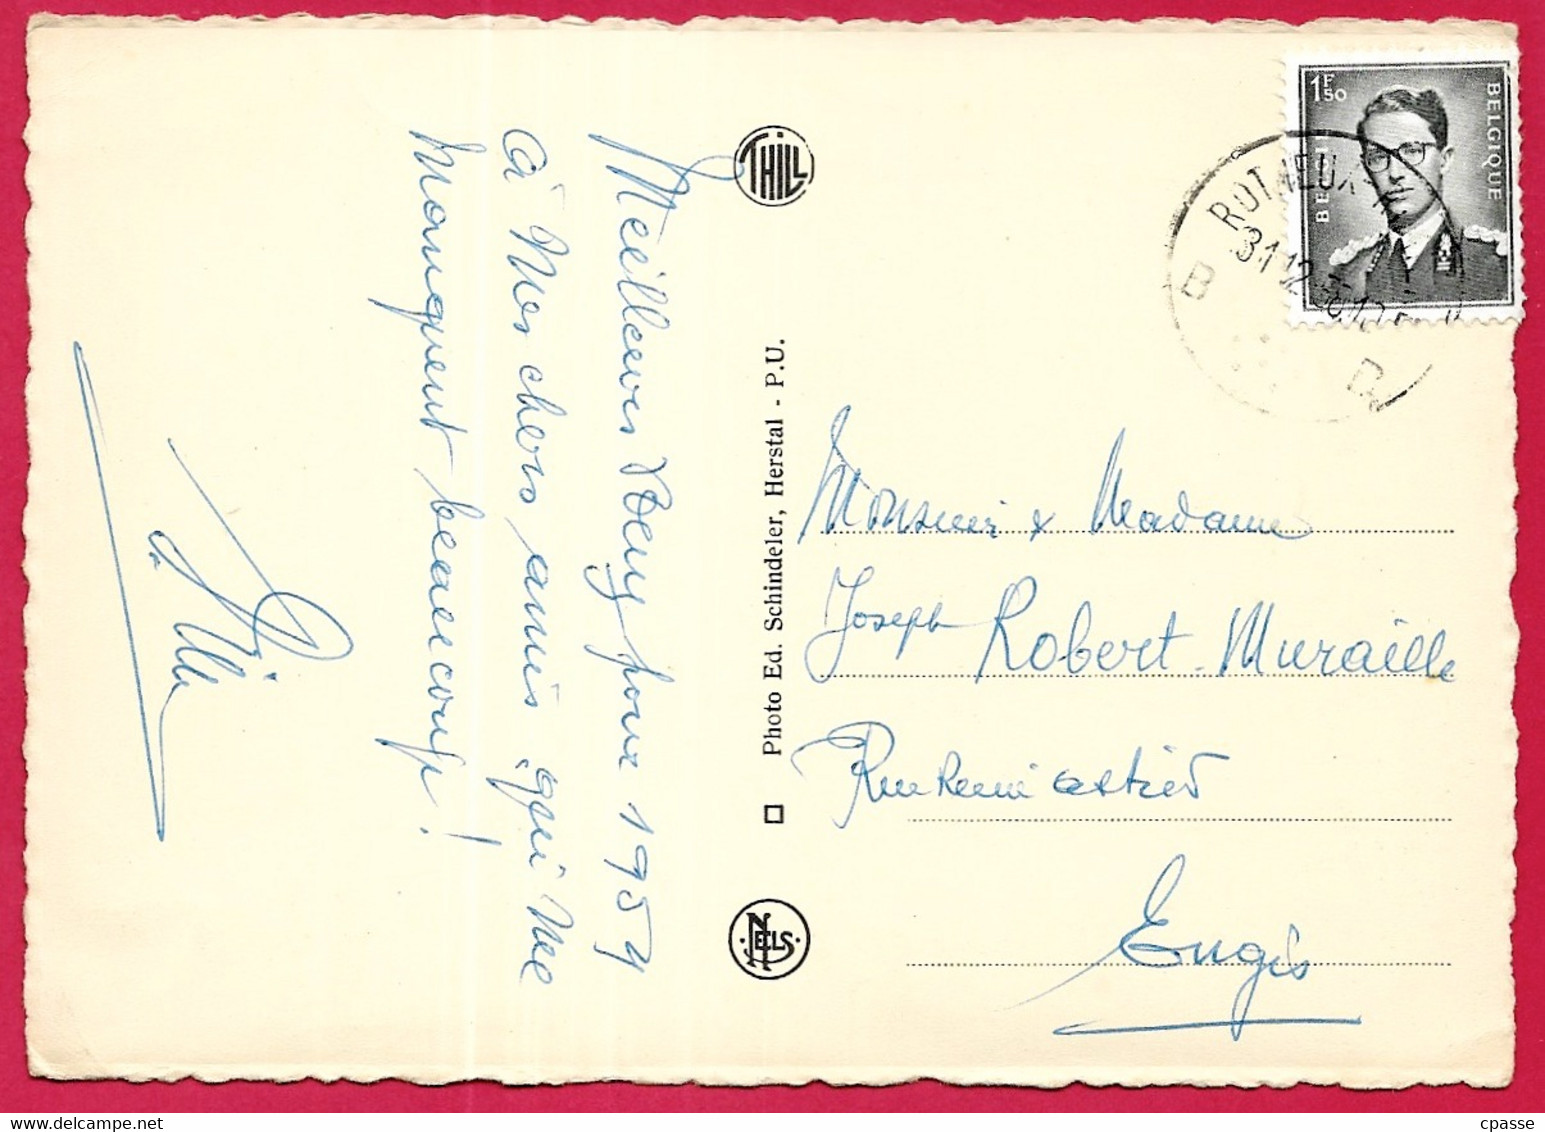 Meilleurs vœux pour 1959
à Mes chers amis qui Me
manquent beaucoup !
THILL
Photo Ed. Schindeler, Herstal - P.U.
NELS
1F50
BELGIQUE
BELGIE
ROTHEUX
31 12 58
B
Monsieur & Madame
Joseph Robert-Muraille
Rue
Engis
cpasse